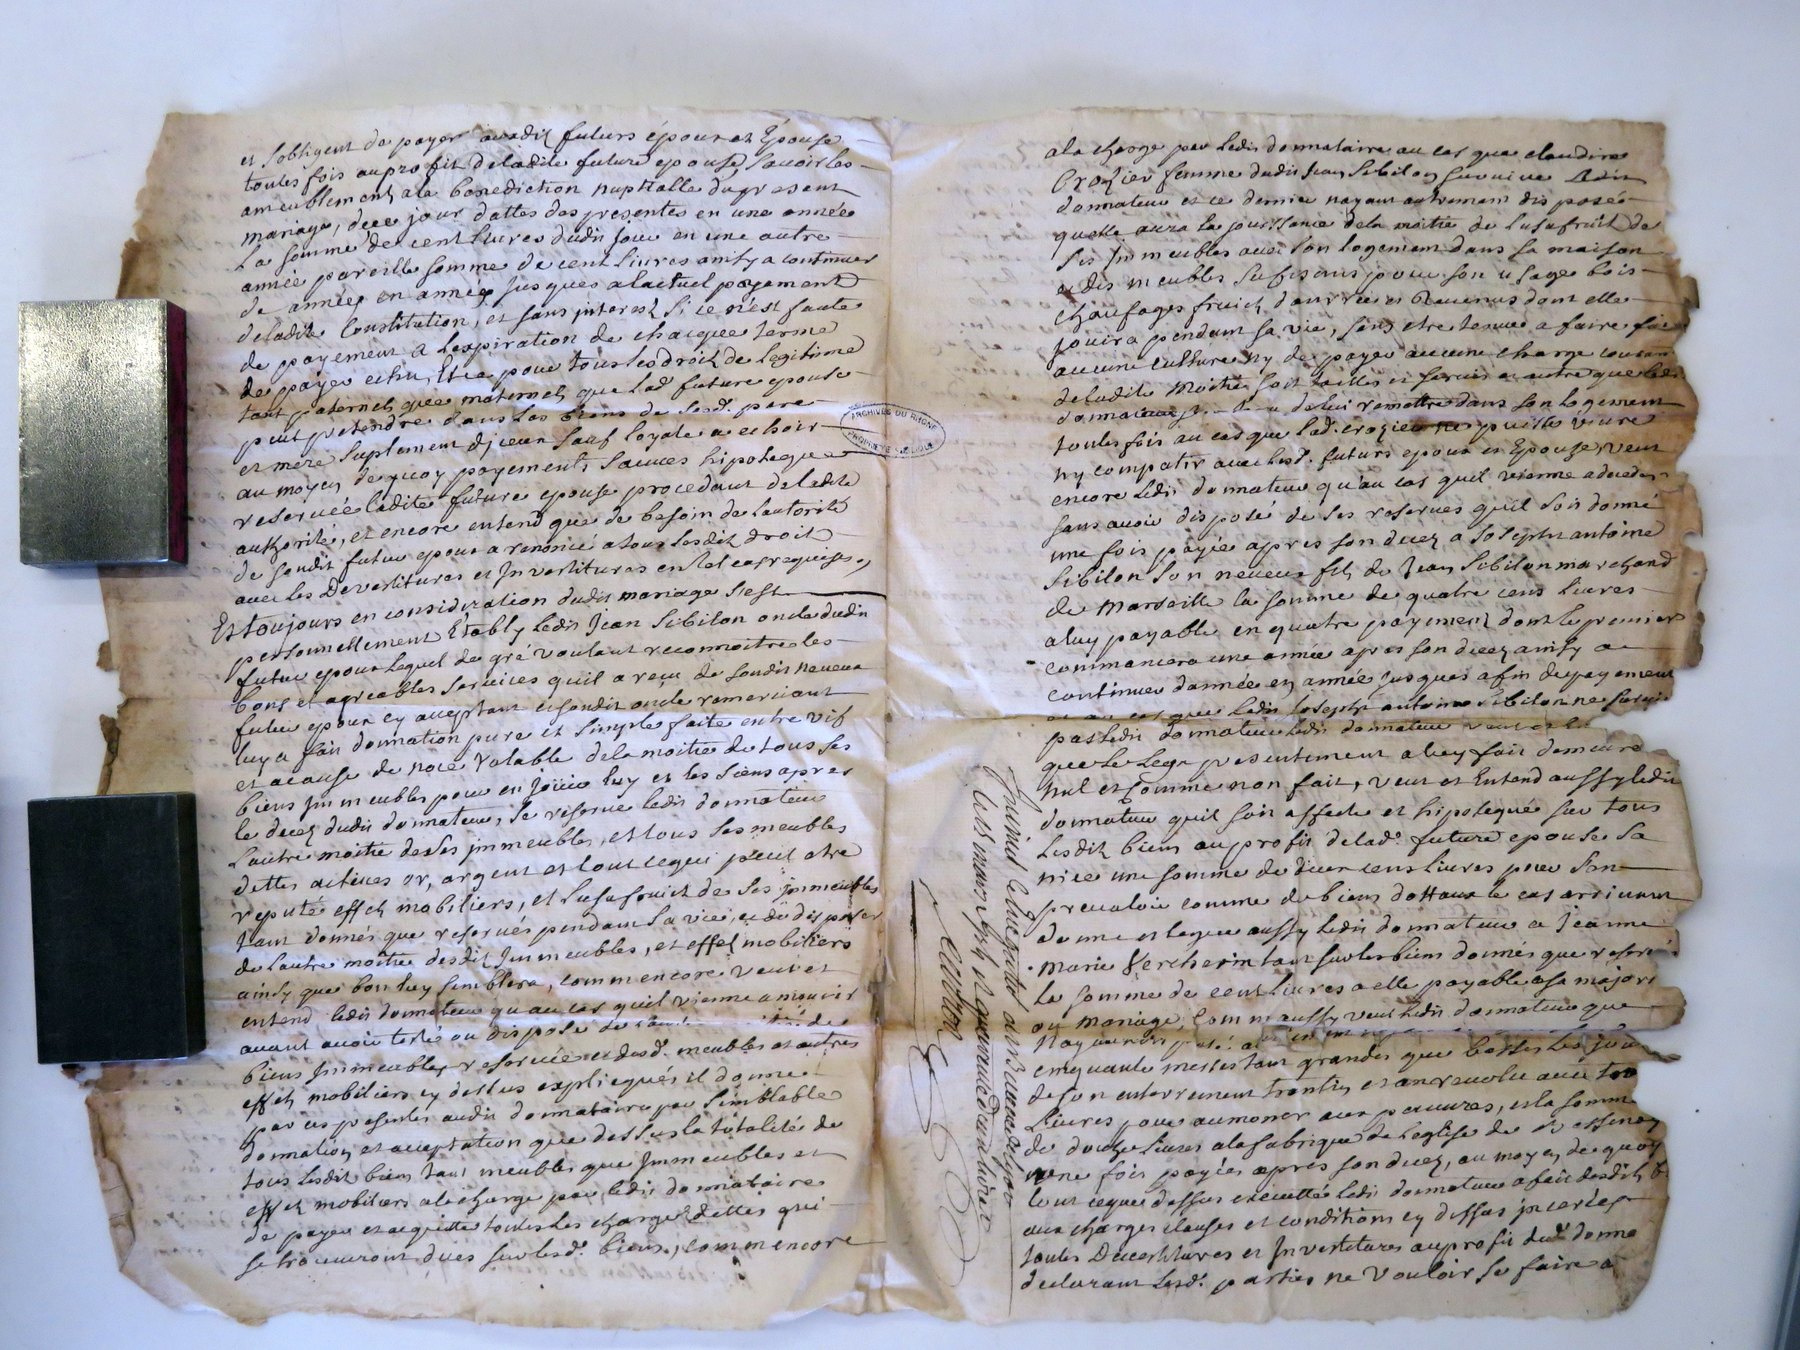 et sobligent de payer auxdits futurs époux et Epouse
toutes fois au profit deladite future epouse, savoir les
ameublements ala benediction nuptialle du present
mariage, dece jour dattes des presentes en une année
La somme de cent livres dudit jour en une autre
année pareille somme de cent livres ainsy a continuer
de année en année jusques alactuel payement
deladite Constitution, et sans interest si ce n'est faute
de payement a lexpiration de chacque terme
de payer echu, Et ce pour tous les droits de legitime
tant paternels que maternels que lad. future epouse
peut pretendre dans les biens de sesd. pere
et mere suplement d'jceux sauf loyale echoir
au moyen dequoy payements sauves hipoteque
reservée ladite future epouse procedant deladite
authorité, et encore entend que de besoin de lautorité
de sondit futur epoux a renoncé a tous lesdits droit
avec les Devertitures et Invertitures en tel cas requises,
Et toujours en consideration dudit mariage s'est
personnellement Etably ledit Jean Sibilon oncle dudit
futur epoux lequel de gré voulant reconnoitre les
bons et agreables services quil a reçu de sondit neveux
futur epoux cy acceptant et sondit oncle remerciant
luy a fait donnation pure et simple faite entre vif
et acause de noce valable dela moitié de tous ses
biens Immeubles pour en jouir luy et les siens apres
le decez dudit donnateur, se reserve ledit donnateur
lautre moitié desdes jmmeubles, et tous ses meubles
dettes actives or, argent et tout cequi peut etre
reputé effets mobiliers, et lusufruit de ses jmmeubles
tant donnés que reservés pendant sa vie, et de disposer
de lautre moitié desdits Immeubles, et effets mobiliers
ainsy que bon luy semblera, comm encore veut et
entend ledit donnateur qu au cas quil vienne a mourir
avant avoir testé ou disposé de de
biens Immeubles reservée et desd. meubles et autres
effets mobiliers cy dessus expliequés il donne
par ces presentes audit donnataire par semblable
donnation et acceptation que dessus la totalité de
tous lesdits biens tant meubles que Immeubles et
effets mobiliers ala charge par ledit donnataire
de payer et acquitter toutes les charges dettes qui
se trouveront dues sur lesd. biens, comm encore
ARCHIVES DU RHONE
PROPRIETE PUBLIQUE
ala charge par ledit donnataire au cas que claudine
Crozier femme dudit Jean Sibilon survive ledit
donnateur et ce dernier nayant autrement disposé
quelle aura la jouissance dela moitié de lusufruit de
ses Immeubles avec son logement dans sa maison
et des meubles sufisants pour son usage bois
chaufages fruits danrrées et Revenus dont elle
jouira pendant sa vie, sans etre tenue a faire faire
aucune culture ny de payer aucune charge
deladite moitié soit tailles et servis et autre que ledit
donnataire delui remettre dans son logement
toutes fois au cas que lad. crozier ne puisse vivre
ny compatir avec lesd. futurs epoux et Epouse, veut
encore ledit donnateur qu'au cas quil vienne a deceder
sans avoir disposé de ses reserves quil soit donné
une fois payée apres son decez a Joseph antoine
Sibilon son neveux fils de Jean Sibilon marchand
de Marseille la somme de quatre cens livres
aluy payable en quatre payements dont le premier
commancera une année apres son decez ainsy a
continuer dannée en année jusques a fin de payement
et au cas que ledit Joseph antoine Sibilon ne
pas ledit donnateur ledit donnateur veut
que le legs presentement aluy fait demeure
nul et comme non fait, veut et Entend aussy ledit
donnateur quil soit affecté et hipotequée sur tous
lesdits biens au profit delad. future epouse sa
niece une somme de deux cens livres pour s'en
prevaloir comme de biens dottaux le cas arrivant
donne et legue aussy ledit donnateur a Jeanne
Marie Vercherin tant sur les biens donnés que reservés
la somme de cent livres a elle payable a sa majori
ou mariage, comm aussy veut ledit donnateur que
cinquante messes tant grandes que basses le jour
de son enterrement trantin et anrevolu avec
livres pour aumoner aux pauvres, et la somme
de douze livres ala fabrique de leglise de
une fois payées apres son decez, au moyen de quoy
tout ceque dessus executté ledit donnateur a fait desdits
aux charges clauses et conditions cy dessus jncertes
toutes Devertitures et Invertitures au profit dud. donna
declarant lesd. parties ne vouloir se faire a